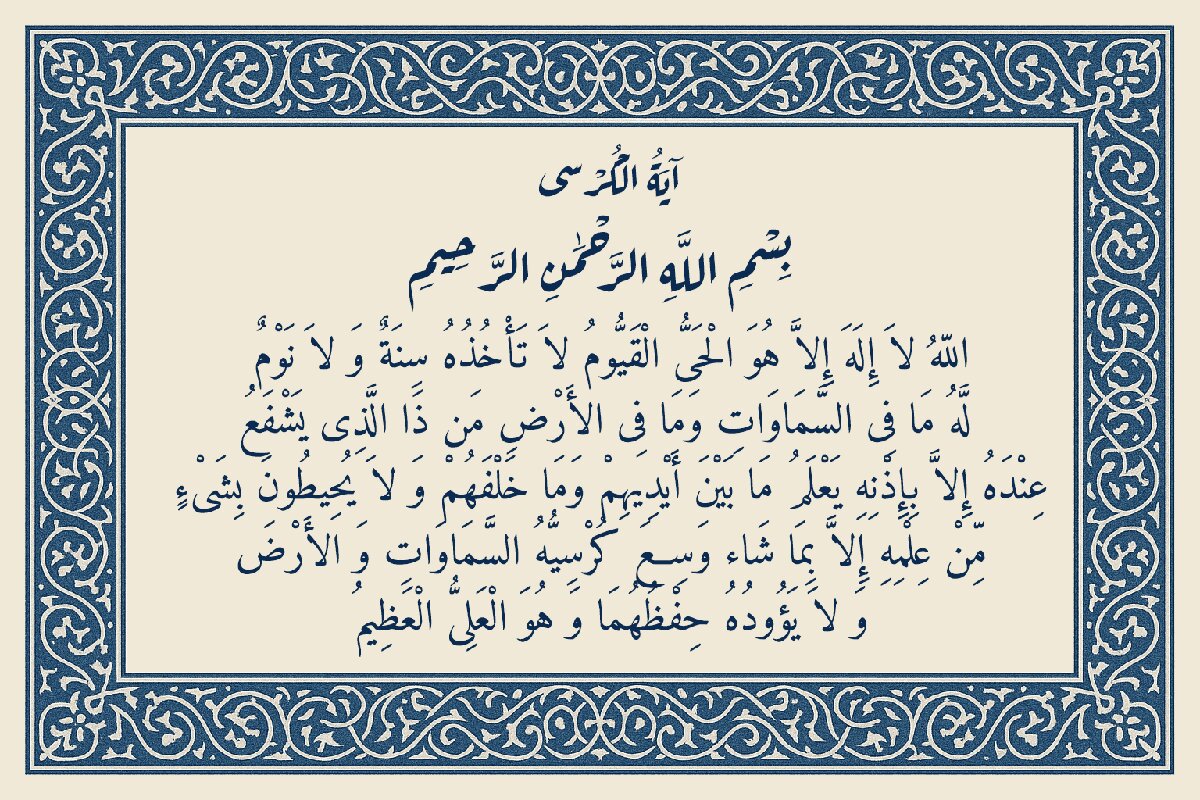 آيَةُ الْكُرْسى
بِسْمِ اللَّهِ الرَّحْمَٰنِ الرَّحِيمِ
اللّهُ لاَ إِلَهَ إِلاَّ هُوَ الْحَىُّ الْقَيُّومُ لاَ تَأْخُذُهُ سِنَةٌ وَ لاَ نَوْمٌ
لَّهُ مَا فِى السَّمَاوَاتِ وَمَا فِى الأَرْضِ مَن ذَا الَّذِى يَشْفَعُ
عِنْدَهُ إِلاَّ بِإِذْنِهِ يَعْلَمُ مَا بَيْنَ أَيْدِيهِمْ وَمَا خَلْفَهُمْ وَ لاَ يُحِيطُونَ بِشَىْءٍ
مِّنْ عِلْمِهِ إِلاَّ بِمَا شَاء وَسِعَ كُرْسِيُّهُ السَّمَاوَاتِ وَ الأَرْضَ
وَ لاَ يَؤُودُهُ حِفْظُهُمَا وَ هُوَ الْعَلِىُّ الْعَظِيمُ